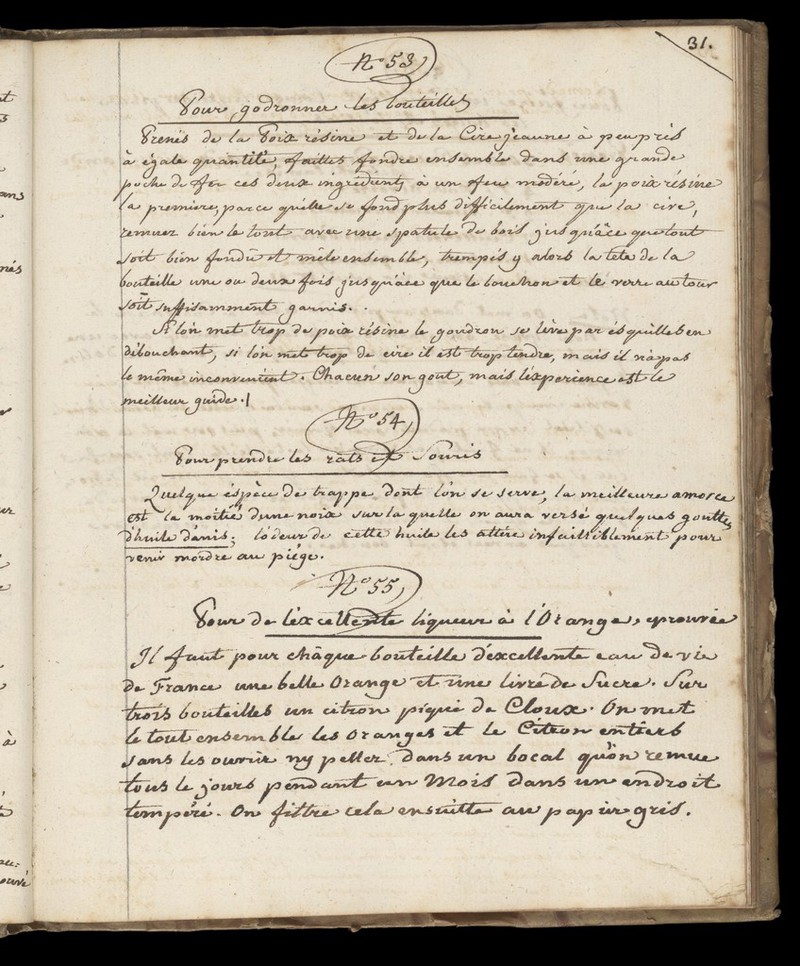 31.
N.° 53
Pour godronner les bouteilles
Prenés de la Poix résine et de la Cire jeaune à peuprés
à égale quantité, faittes fondre ensemble dans une grande
poche de fer ces deux ingredients à un feu modéré, la poix résine
la premiere, parce qu'elle se fond plus difficilement que la cire,
remuez bien le tout avec une spatule de bois jusqu'àce que tout
soit bien fondu et mêlé ensemble, trempés y alors la tete de la
bouteille une ou deux fois jusqu'àce que le bouchon et le verre au tour
soit suffisamment garnis.
Si l'on met trop de poix résine le goudron se lève par ésquilles en
débouchant, si l'on mets trop de cire il est trop tendre, mais il n'a pas
le même inconvenient. Chacun son gout, mais l'éxperience est le
meilleur guide.
N.° 54
Pour prendre les rats et Souris
Quelque éspèce de trappe dont l'on se serve, la meilleure amorce
est la moitié d'une noix sur la quelle on aura versé quelques gouttes
d'huile d'anis; l'ôdeur de cette huile les attire infailliblement pour
venir mordre au piége.
N.° 55
Pour de l'éxcellente liqueur à l'Orange, éprouvée
Il faut pour châque bouteille d'excellente eau de vie
de France une belle Orange et une livre de Sucre. Sur
trois bouteilles un citron piqué de Cloux. On met
le tout ensemble les oranges et le Citron entiers
sans les ouvrir ny peller dans un bocal qu'on remue
tous le jours pendant un Mois dans un endroit
temperé. On filtre cela ensuitte au papier gris.